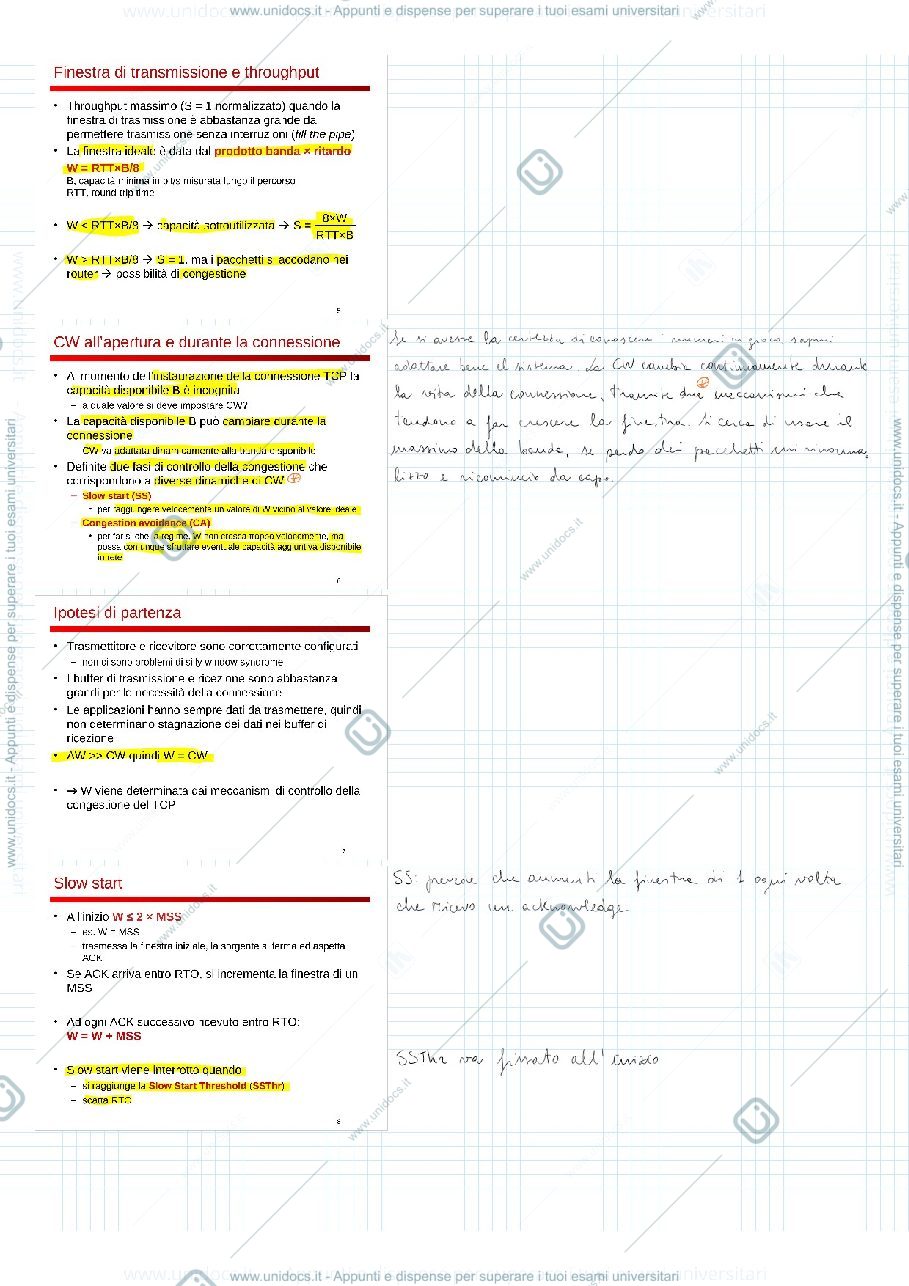 www.unidocs.it - Appunti e dispense per superare i tuoi esami universitari
Finestra di trasmissione e throughput
• Throughput massimo (S = 1 normalizzato) quando la
finestra di trasmissione è abbastanza grande da
permettere trasmissione senza interruzioni (fill the pipe)
• La finestra ideale è data dal prodotto banda × ritardo
W = RTT×B/8
B, capacità minima in bit/s misurata lungo il percorso
RTT, round trip time
• W < RTT×B/8 → capacità sottoutilizzata → S = 8×W
RTT×B
• W > RTT×B/8 → S = 1, ma i pacchetti si accodano nei
router → possibilità di congestione
5
CW all'apertura e durante la connessione
• Al momento dell'instaurazione della connessione TCP la
capacità disponibile B è incognita
– a quale valore si deve impostare CW?
• La capacità disponibile B può cambiare durante la
connessione
CW va adattata dinamicamente alla banda disponibile
• Definite due fasi di controllo della congestione che
corrispondono a diverse dinamiche di CW
– Slow start (SS)
• per raggiungere velocemente un valore di W vicino al valore ideale
– Congestion avoidance (CA)
• per far sì che, a regime, W non cresca troppo velocemente, ma
possa comunque sfruttare eventuale capacità aggiuntiva disponibile
in rete
6
Se si avesse la certezza di conoscere i numeri in gioco saprei
adattare bene il sistema. La CW cambia continuamente durante
la vita della connessione, tramite due meccanismi che
tendono a far crescere la finestra. Si cerca di usare il
massimo della banda, se perdo dei pacchetti
e ricomincio da capo.
Ipotesi di partenza
• Trasmettitore e ricevitore sono correttamente configurati
– non ci sono problemi di silly window syndrome
• I buffer di trasmissione e ricezione sono abbastanza
grandi per le necessità della connessione
• Le applicazioni hanno sempre dati da trasmettere, quindi
non determinano stagnazione dei dati nei buffer di
ricezione
• AW >> CW quindi W = CW
• → W viene determinata dai meccanismi di controllo della
congestione del TCP
7
Slow start
• All'inizio W ≤ 2 × MSS
– es. W = MSS
– trasmessa la finestra iniziale, la sorgente si ferma ed aspetta
ACK
• Se ACK arriva entro RTO, si incrementa la finestra di un
MSS
• Ad ogni ACK successivo ricevuto entro RTO:
W = W + MSS
• Slow start viene interrotto quando
– si raggiunge la Slow Start Threshold (SSThr)
– scatta RTO
8
SS: prevede che aumenti la finestra di 1 ogni volta
che ricevo un acknowledge.
SSThr va fissato all'inizio
www.unidocs.it - Appunti e dispense per superare i tuoi esami universitari